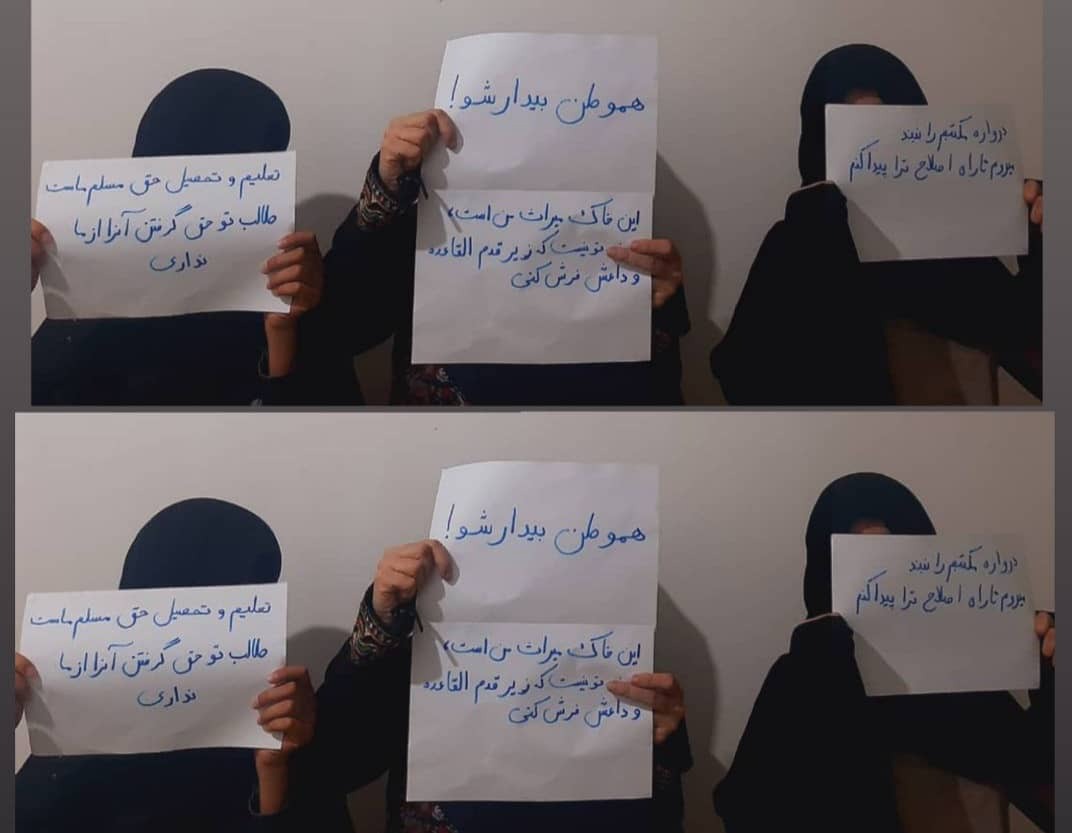 دروازه مکتبم را نبند
میروم تا راه اصلاح ترا پیدا کنم
هموطن بیدار شو!
این خاک میراث من است،
تو نیست که زیر قدم القاعده
و داعش فرش کنی
تعلیم و تحصیل حق مسلم ماست
طالب تو حق گرفتن آنرا از ما
نداری
دروازه مکتبم را نبند
میروم تا راه اصلاح ترا پیدا کنم
هموطن بیدار شو!
این خاک میراث من است،
تو نیست که زیر قدم القاعده
و داعش فرش کنی
تعلیم و تحصیل حق مسلم ماست
طالب تو حق گرفتن آنرا از ما
نداری